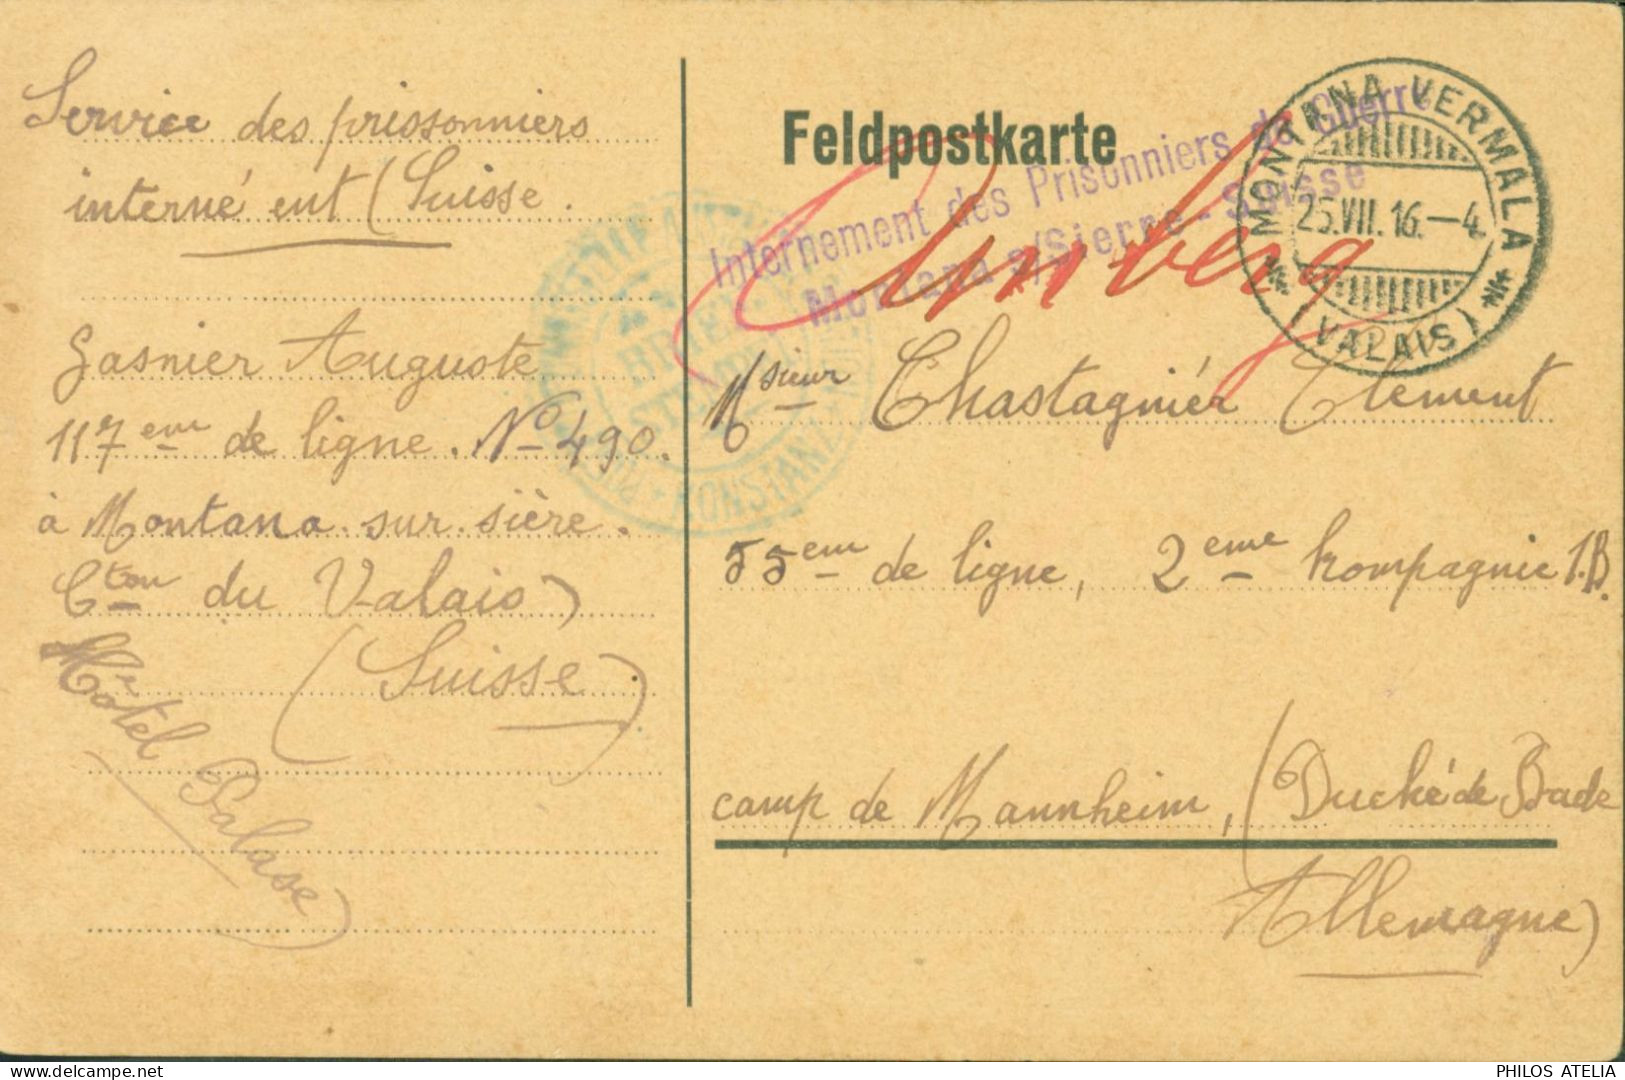 Service des prissonniers
interné ent (Suisse.
Gasnier Auguste
117eme de ligne. No 490.
à Montana sur sière.
Cton du Valais)
(Suisse)
Hôtel Palase)
Feldpostkarte
Internement des Prisonniers de Guerre
Montana s/Sierre - Suisse
Amberg
MONTANA VERMALA
25.VII.16.-4.
(VALAIS)
KONSTANZ
Msieur Chastagniér Clement
55eme de ligne, 2eme kompagnie 1.B.
camp de Mannheim, (Duché de Bade
Allemagne)
PHILOS ATELIA